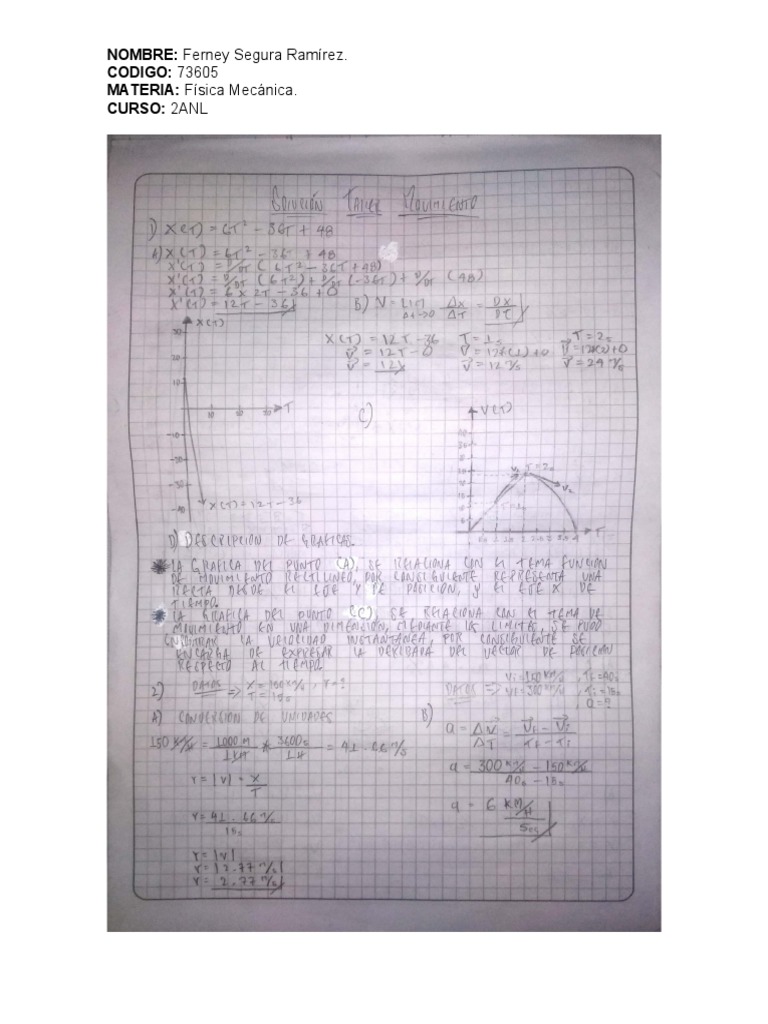 NOMBRE: Ferney Segura Ramírez.
CODIGO: 73605
MATERIA: Física Mecánica.
CURSO: 2ANL
SOLUCIÓN TALLER MOVIMIENTO
1) X(T) = 6T² - 36T + 48
A) X(T) = 6T² - 36T + 48
X'(T) = D/DT (6T² - 36T + 48)
X'(T) = D/DT (6T²) + D/DT (-36T) + D/DT (48)
X'(T) = 6 x 2T - 36 + 0
X'(T) = 12T - 36
B) V = LIM ΔT→0 ΔX/ΔT = DX/DT
X(T) = 12T - 36
V = 12T - 0
V = 12
T = 1s
V = 12(1) + 0
V = 12 m/s
T = 2s
V = 12(2) + 0
V = 24 m/s
X(T)
30
20
10
T
-10
-20
-30
-40
X(T) = 12T - 36
C)
V(T)
V1
T = 2s
V2
T
D) DESCRIPCION DE GRAFICAS.
LA GRAFICA DEL PUNTO (A), SE RELACIONA CON EL TEMA FUNCION
DE MOVIMIENTO RECTILINEO, POR CONSIGUIENTE REPRESENTA UNA
RECTA DESDE EL EJE Y DE POSICION, Y EL EJE X DE
TIEMPO.
LA GRAFICA DEL PUNTO (C), SE RELACIONA CON EL TEMA DE
MOVIMIENTO EN UNA DIMENCION, MEDIANTE LOS LIMITES, SE PUDO
ENCONTRAR LA VELOCIDAD INSTANTANEA, POR CONSIGUIENTE SE
ENCARGA DE EXPRESAR LA DERIBADA DEL VECTOR DE POSICION
RESPECTO AL TIEMPO.
2) DATOS ⇒ X = 150 Km/h, r = ?
T = 15s
A) CONVERCION DE UNIDADES
150 Km/H = 1000 M / 1 KM * 3600s / 1H = 41.66 m/s
r = |V| = X/T
r = 41.66 m/s / 15s
r = |V|
r = |2.77 m/s|
r = 2.77 m/s
B)
DATOS ⇒ Vi = 150 Km/h, Tf = 40s
Vf = 300 Km/h, Ti = 15s
a = ?
a = ΔV/ΔT = Vf - Vi / Tf - Ti
a = 300 Km/h - 150 Km/h / 40s - 15s
a = 6 KM/H / Seg